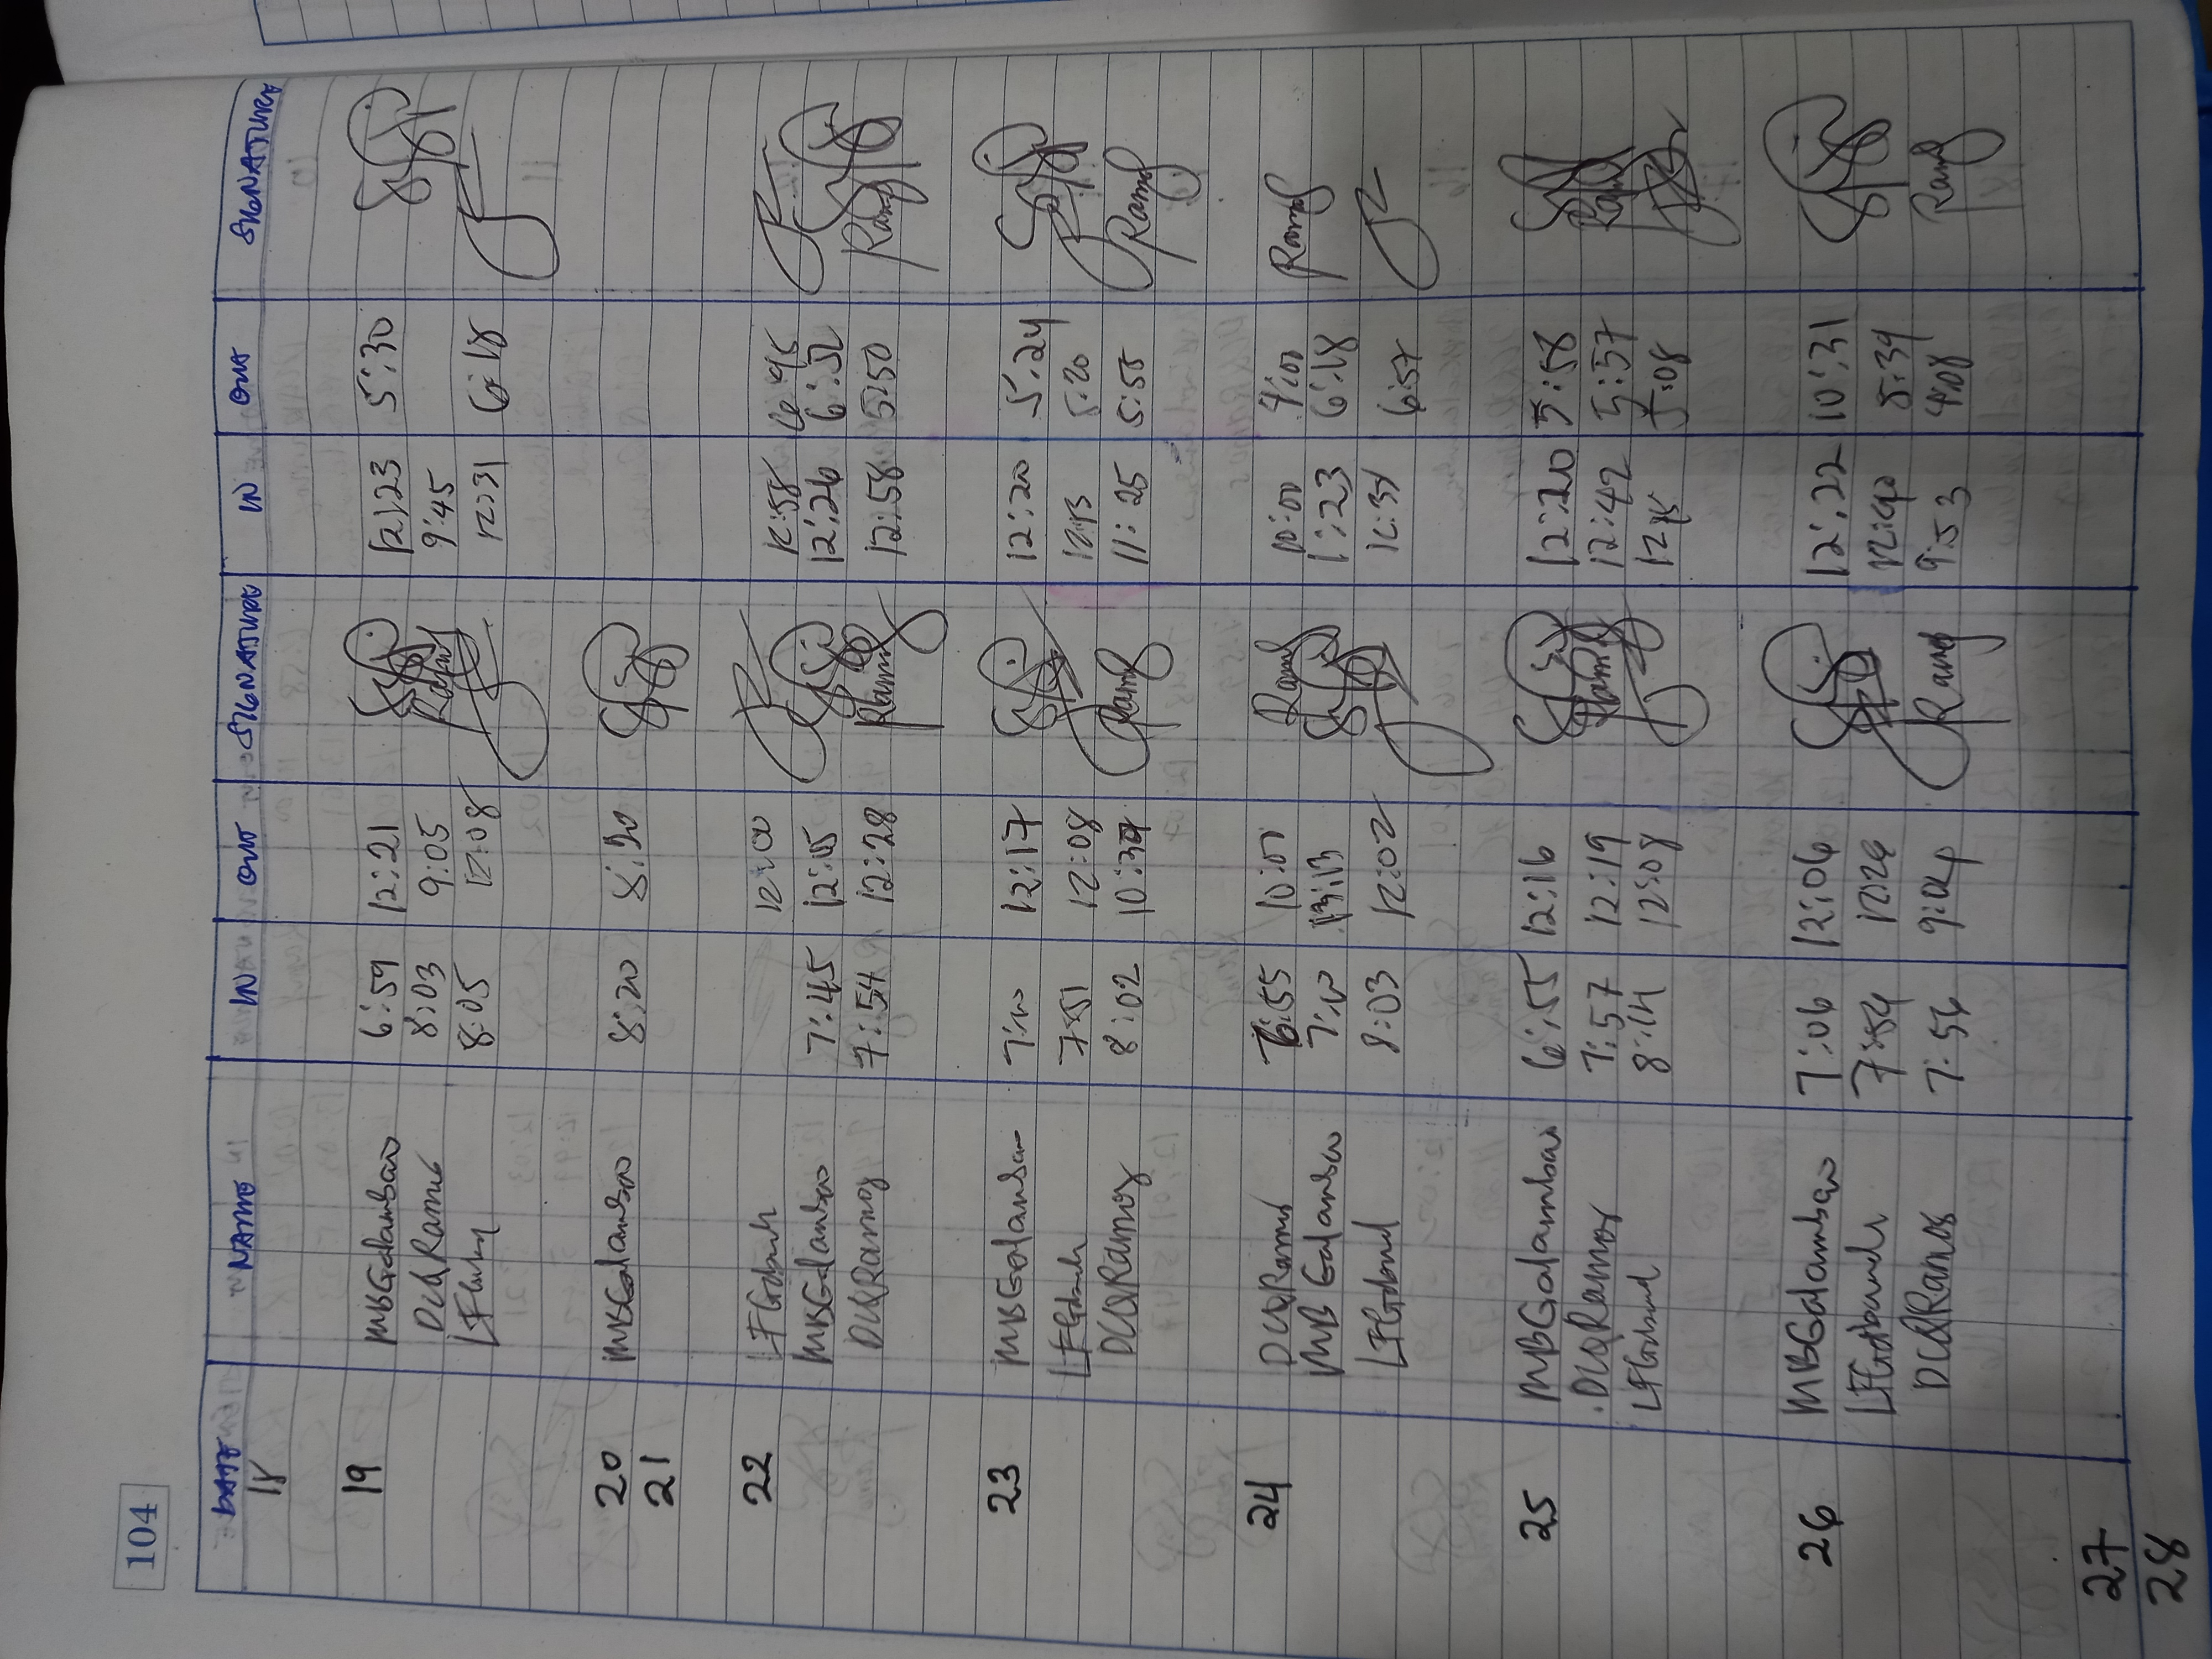 104
DATE NAME IN OUT SIGNATURE IN OUT SIGNATURE
18
19 MBGalambao 6:59 12:21 12:23 5:30
DCQRamos 8:03 9:05 9:45
8:05 12:08 12:31 6:18
20 MBGalambao 8:20 8:20
21
22 12:00 12:58
MBGalambao 7:45 12:15 12:26 6:52
DCQRamos 7:54 12:28 Ramos 12:58 5:50 Ramos
23 MBGalambao 7:10 12:17 12:20 5:24
7:51 12:08 5:20
DCQRamos 8:02 Ramos 11:25 5:55 Ramos
24 DCQRamos 6:55 10:01 Ramos 10:00 4:00 Ramos
MB Galambao 7:10 1:23 6:18
8:03 12:02 12:31 6:57
25 MBGalambao 6:55 12:16 12:20 5:58
DCQRamos 7:57 12:19 Ramos 12:42 5:57 Ramos
8:14 12:08 5:08
26 MBGalambao 7:06 12:06 12:22 10:31
7:54 12:26 12:40 5:34
DCQRamos 7:56 Ramos 9:53 4:08 Ramos
27
28